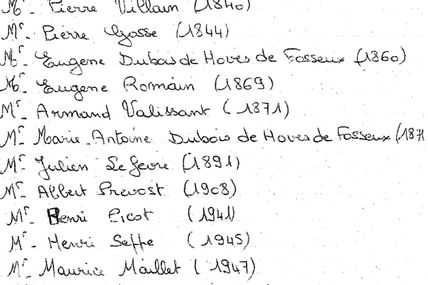 Mr. Pierre Villain (1840)
Mr. Pierre Gosse (1844)
Mr. Eugene Dubois de Hoves de Fosseux (1860)
Mr. Eugene Romain (1869)
Mr. Armand Valissant (1871)
Mr. Marie-Antoine Dubois de Hoves de Fosseux (187
Mr. Julien Lefevre (1891)
Mr. Albert Prevost (1908)
Mr. Henri Picot (1941)
Mr. Henri Seppe (1945)
Mr. Maurice Maillet (1947)